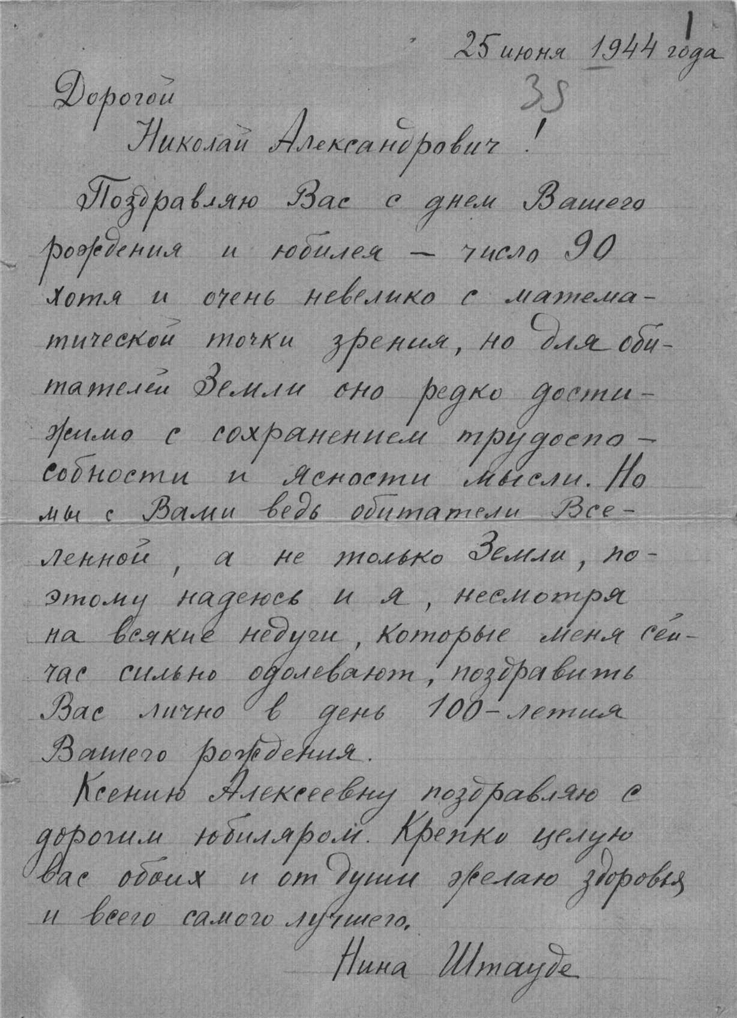 1
25 июня 1944 года
39
Дорогой
Николай Александрович!
Поздравляю Вас с днем Вашего
рождения и юбилея — число 90
хотя и очень невелико с матема-
тической точки зрения, но для оби-
тателей Земли оно редко дости-
жимо с сохранением трудоспо-
собности и ясности мысли. Но
мы с Вами ведь обитатели Все-
ленной, а не только Земли, по-
этому надеюсь и я, несмотря
на всякие недуги, которые меня сей-
час сильно одолевают, поздравить
Вас лично в день 100-летия
Вашего рождения.
Ксению Алексеевну поздравляю с
дорогим юбиляром. Крепко целую
вас обоих и от души желаю здоровья
и всего самого лучшего.
Нина Штауде